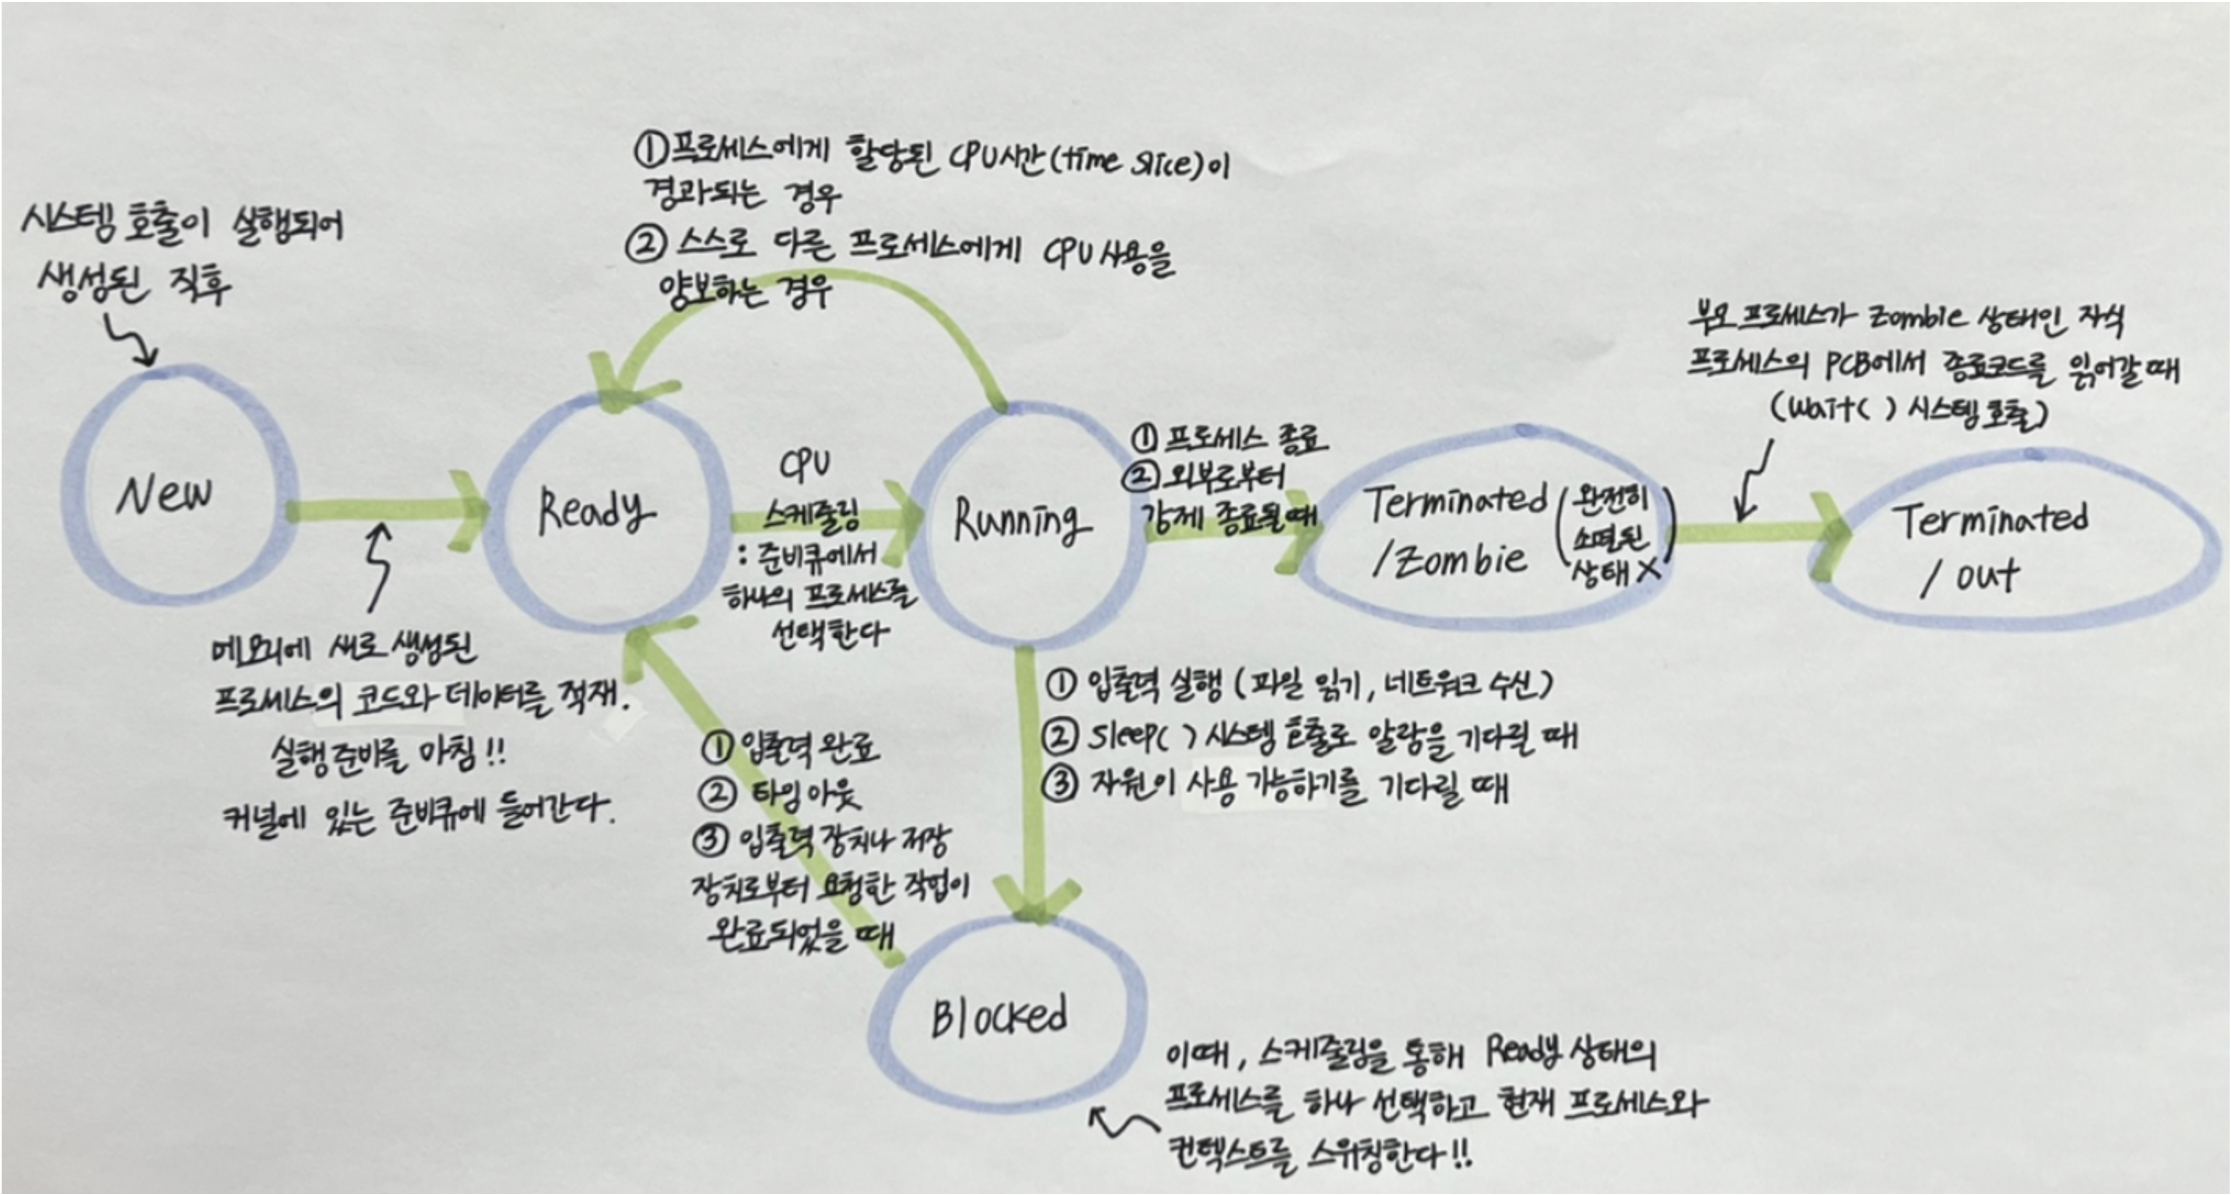 시스템 호출이 실행되어
생성된 직후
New
메모리에 새로 생성된
프로세스의 코드와 데이터를 적재.
실행준비를 마침!!
커널에 있는 준비큐에 들어간다.
①프로세스에게 할당된 CPU시간(time slice)이
경과되는 경우
② 스스로 다른 프로세스에게 CPU 사용을
양보하는 경우
Ready
CPU
스케줄링
: 준비큐에서
하나의 프로세스를
선택한다
Running
① 프로세스 종료
② 외부로부터
강제 종료될 때
Terminated
/Zombie
(완전히
소멸된
상태 X)
부모 프로세스가 Zombie 상태인 자식
프로세스의 PCB에서 종료코드를 읽어갈 때
(wait( ) 시스템 호출)
Terminated
/ out
① 입출력 실행 (파일 읽기, 네트워크 수신)
② sleep( ) 시스템 호출로 알람을 기다릴 때
③ 자원이 사용 가능하기를 기다릴 때
① 입출력 완료
② 타임 아웃
③ 입출력 장치나 저장
장치로부터 요청한 작업이
완료되었을 때
Blocked
이때, 스케줄링을 통해 Ready 상태의
프로세스를 하나 선택하고 현재 프로세스와
컨텍스트를 스위칭한다!!